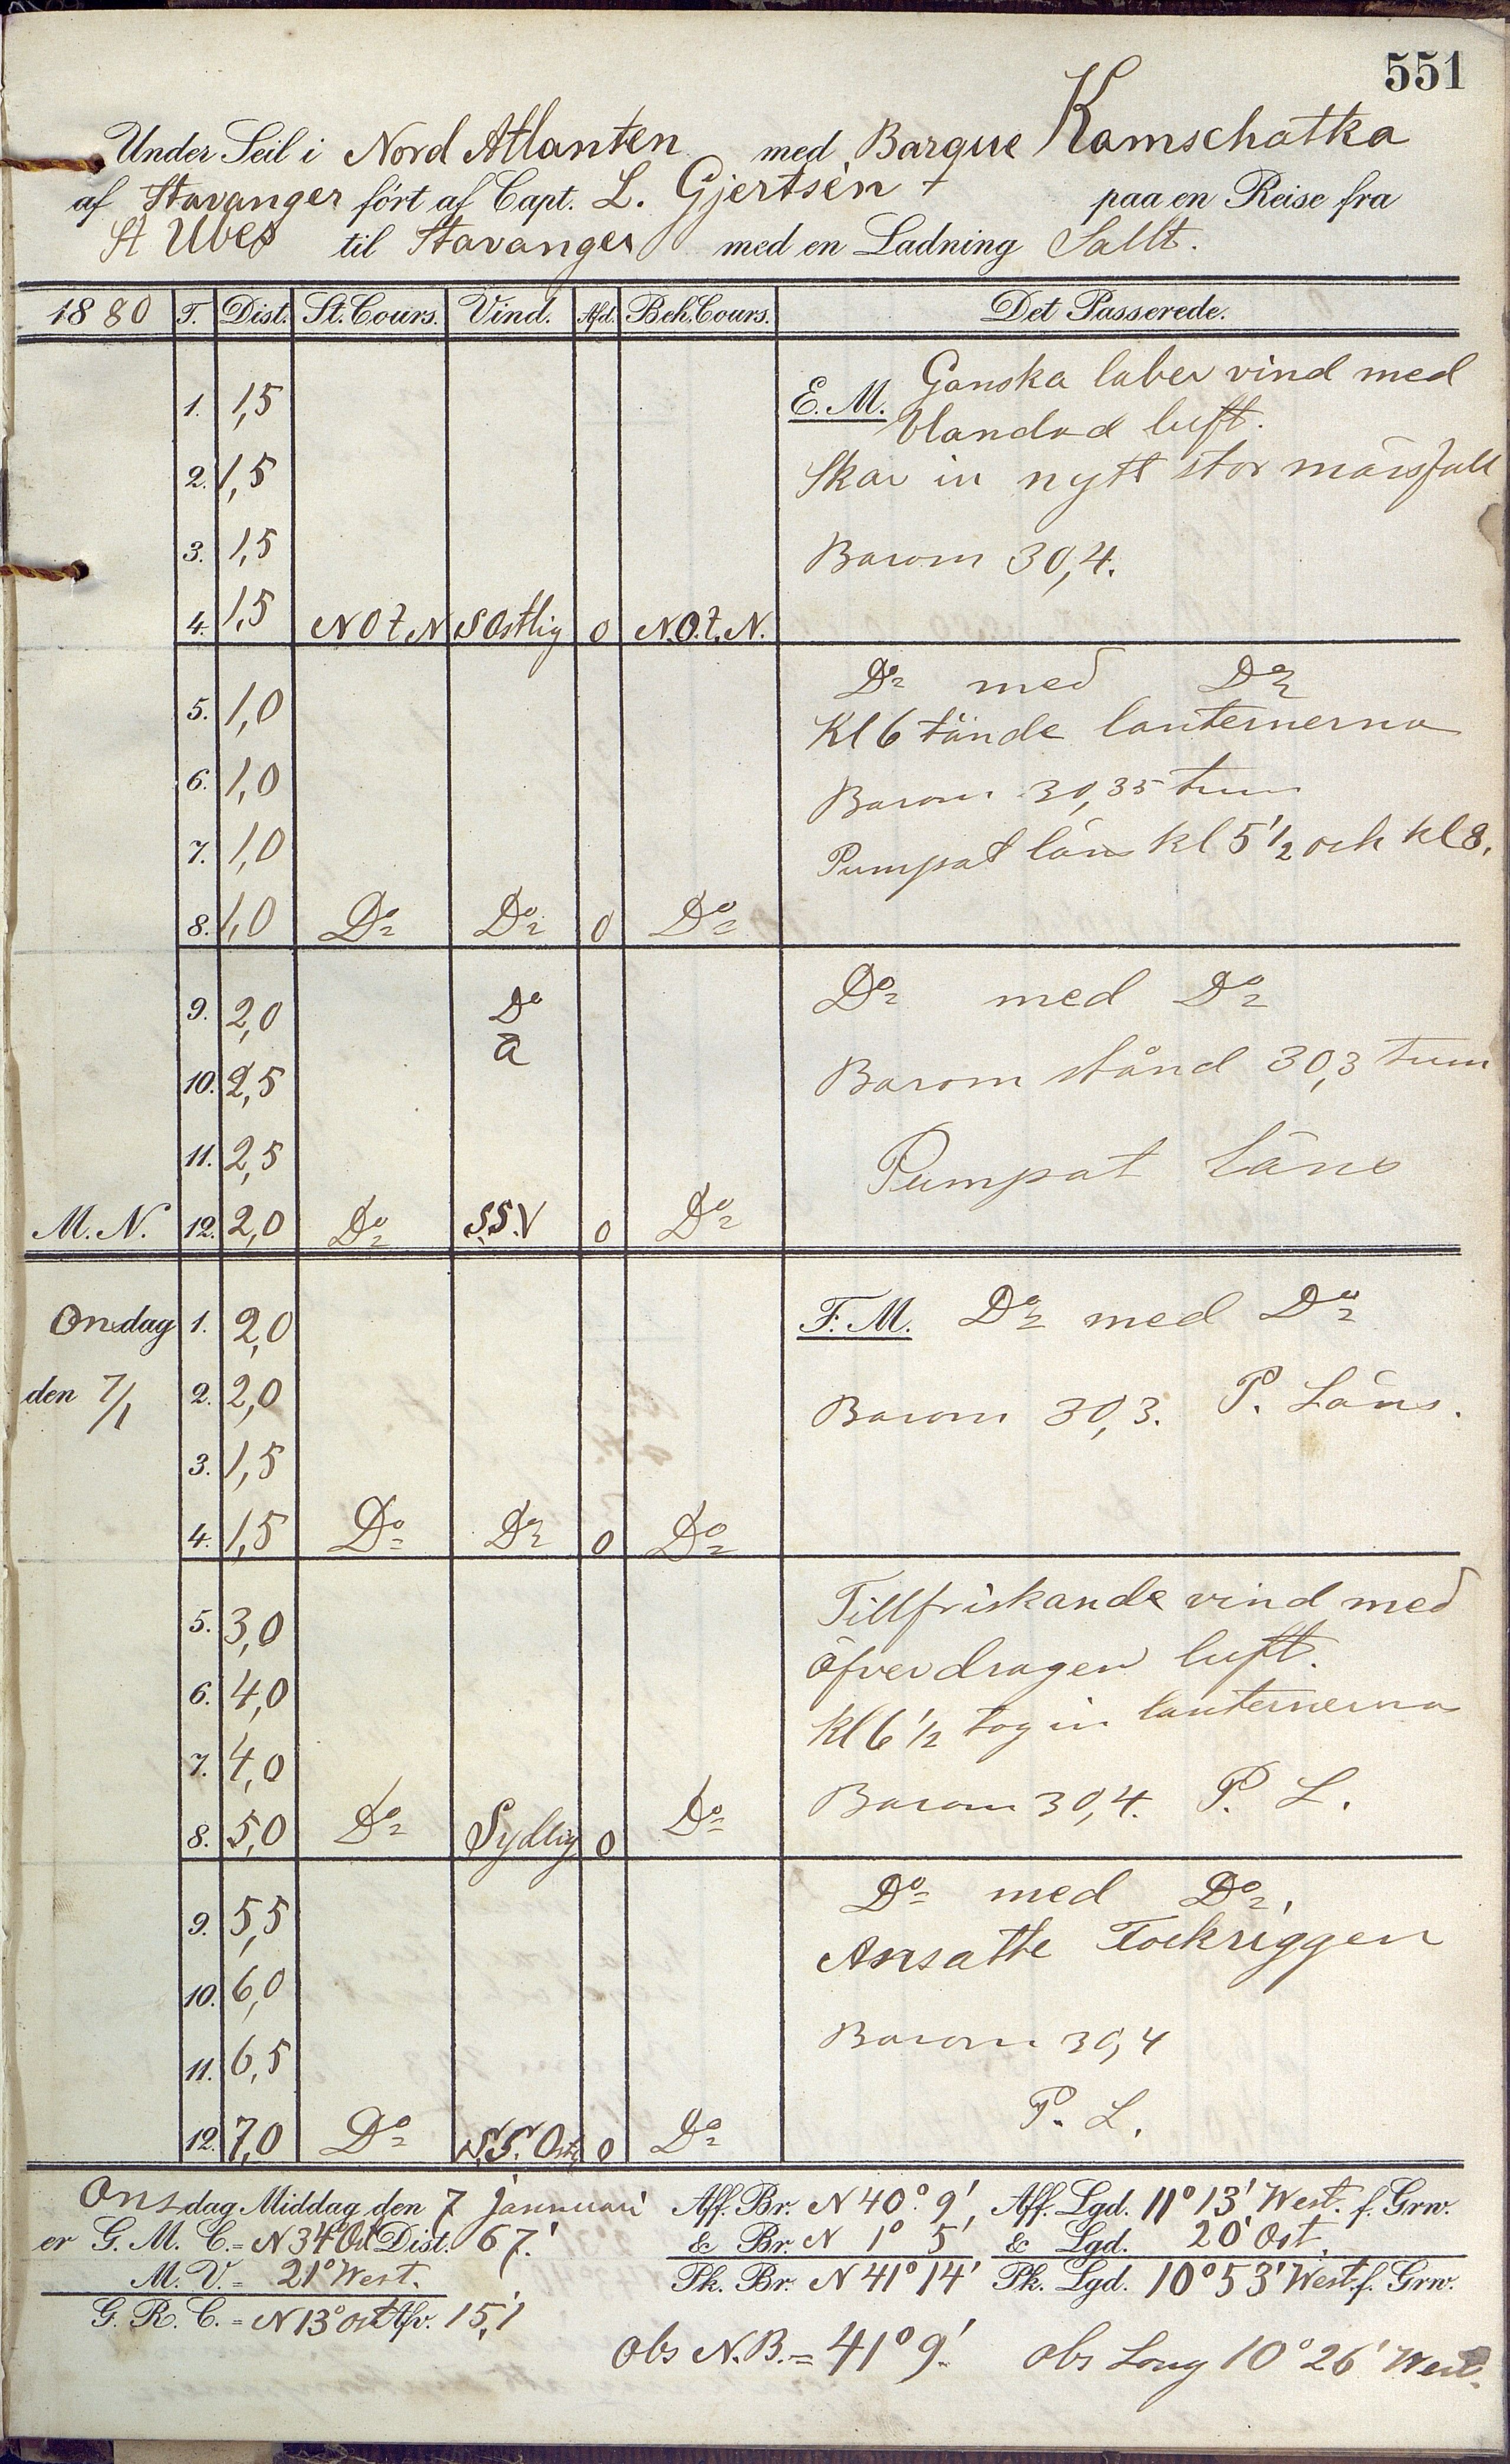 551
Under Seil i Nord Atlanten med Barque Kamschatka
af Stavanger fört af Capt. L. Gjertsen paa en Reise fra
St Ubes til Stavanger med en Ladning Sallt.
1880 T. Dist. St. Cours. Vind. Afd. Beh. Cours. Det Passerede.
E. M. Ganska laber vind med
1. 1,5 blandad luft.
2. 1,5 Skar in nytt stor märsfall
3. 1,5 Barom 30,4.
4. 1,5 NOt.N SOstlig 0 N.O.t.N.
Do med Do
5. 1,0 Kl 6 tände lanternerna
6. 1,0 Barom 30,35 tum
7. 1,0 Pumpat läns kl 5 1/2 och kl 8.
8. 1,0 Do Do 0 Do
9. 2,0 Do Do med Do
a
10. 2,5 Barom stånd 30,3 tum
11. 2,5 Pumpat läns
M. N. 12. 2,0 Do S.S.V 0 Do
Onsdag 1. 2,0 F. M. Do med Do
den 7/1 2. 2,0 Barom 30,3. P. Läns.
3. 1,5
4. 1,5 Do Do 0 Do
Tillfriskande vind med
5. 3,0 öfverdragen luft.
6. 4,0 Kl 6 1/2 tog in lanternerna
7. 4,0 Barom 30,4. P. L.
8. 5,0 Do Sydlig 0 Do
Do med Do.
9. 5,5 Ansatte Fockriggen
10. 6,0 Barom 30,4
11. 6,5 P. L.
12. 7,0 Do S.S. Ost 0 Do
Onsdag Middag den 7 januari Aff. Br. N 40° 9', Aff. Lgd. 11° 13' West. f. Grw.
er G. M. C. = N 34° Ost Dist. 67.' & Br. N 1° 5' & Lgd. 20' Ost.
M. V. = 21° West. Pk. Br. N 41° 14' Pk. Lgd. 10° 53' West. f. Grw.
G. R. C. = N 13° Ost Afv. 15,'1
Obs N.B. = 41° 9'. Obs Long 10° 26' West.